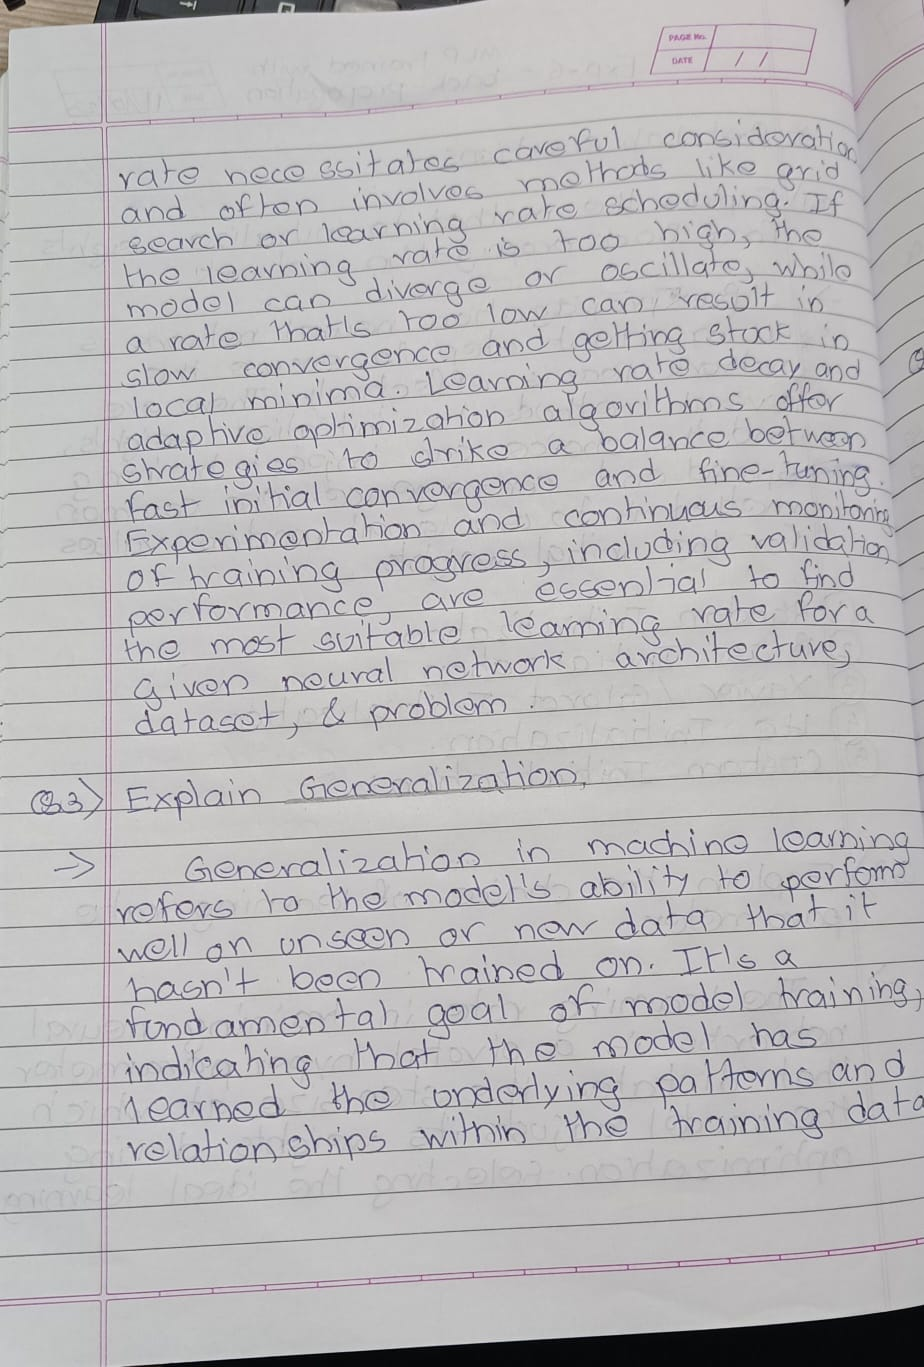 PAGE No.
DATE / /
rate necessitates careful consideration
and often involves methods like grid
search or learning rate scheduling. If
the learning rate is too high, the
model can diverge or oscillate, while
a rate that's too low can result in
slow convergence and getting stuck in
local minima. Learning rate decay and
adaptive optimization algorithms offer
strategies to drike a balance between
fast initial convergence and fine-tuning.
Experimentation and continuous monitoring
of training progress, including validation
performance, are essential to find
the most suitable learning rate for a
given neural network architecture,
dataset, & problem.
Q3) Explain Generalization.
→ Generalization in machine learning
refers to the model's ability to perform
well on unseen or new data that it
hasn't been trained on. It's a
fundamental goal of model training,
indicating that the model has
learned the underlying patterns and
relationships within the training data